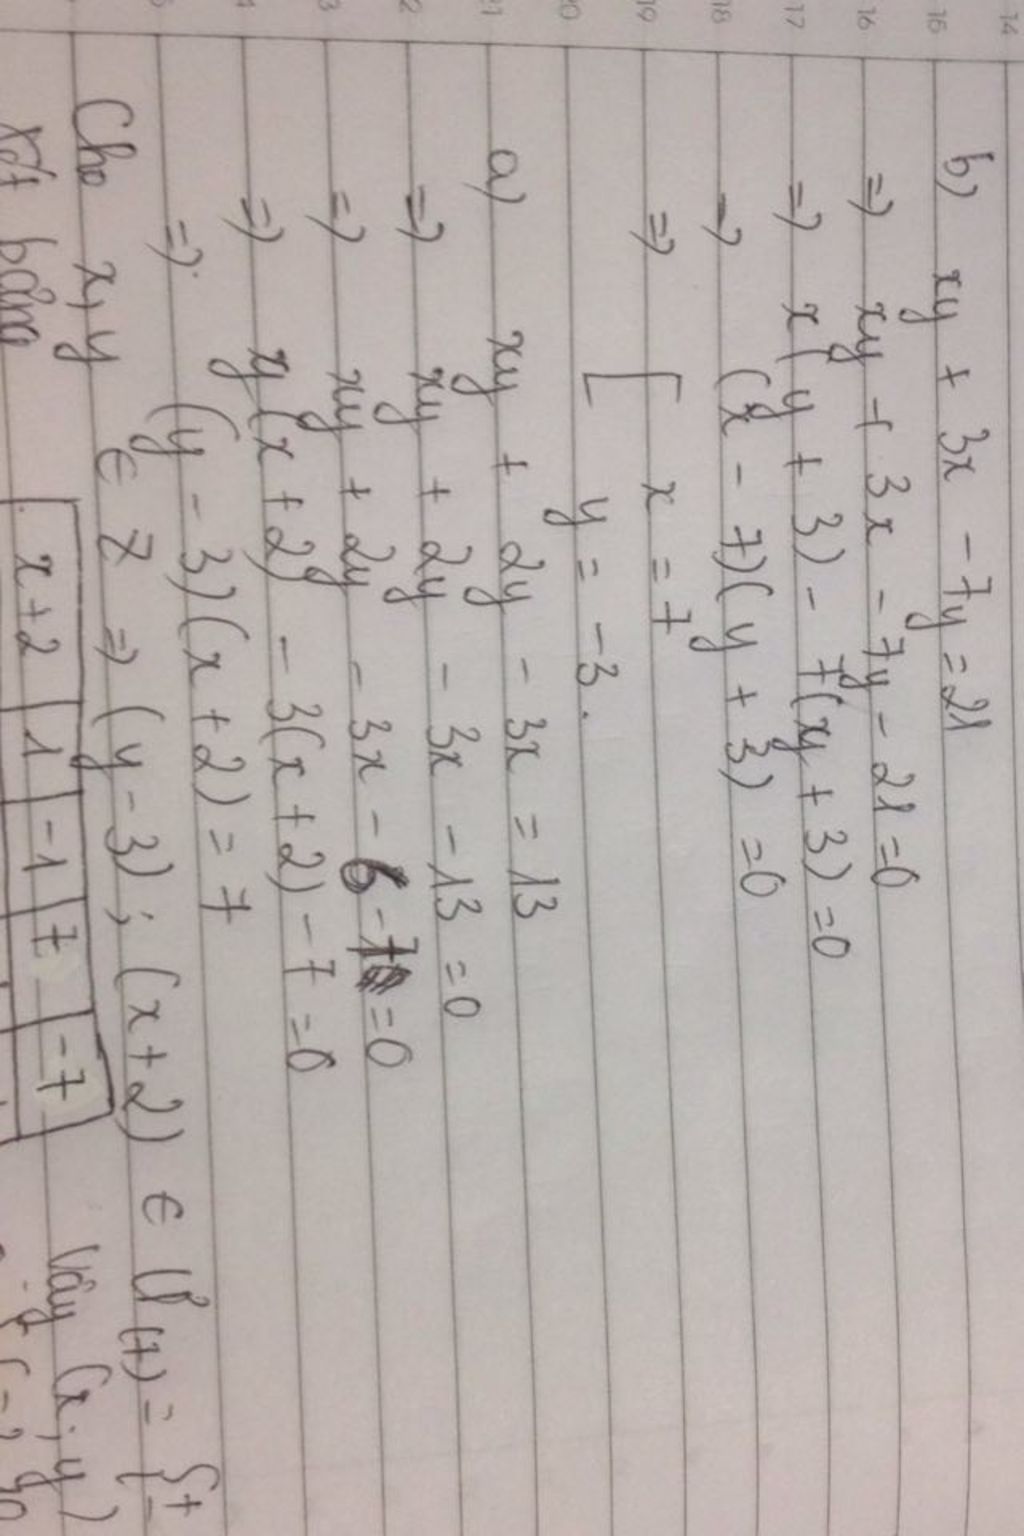 14
15
16
17
18
19
20
21
b) xy + 3x - 7y = 21
=> xy + 3x - 7y - 21 = 0
=> x(y + 3) - 7(y + 3) = 0
=> (x - 7)(y + 3) = 0
=> [ x = 7
y = -3.
a) xy + 2y - 3x = 13
=> xy + 2y - 3x - 13 = 0
=> xy + 2y - 3x - 6 - 7 = 0
=> y(x + 2) - 3(x + 2) - 7 = 0
=> (y - 3)(x + 2) = 7
Cho x, y ∈ Z => (y - 3); (x + 2) ∈ Ư(7) = {±
Xét bảng x+2 1 -1 7 -7 Vậy (x; y)